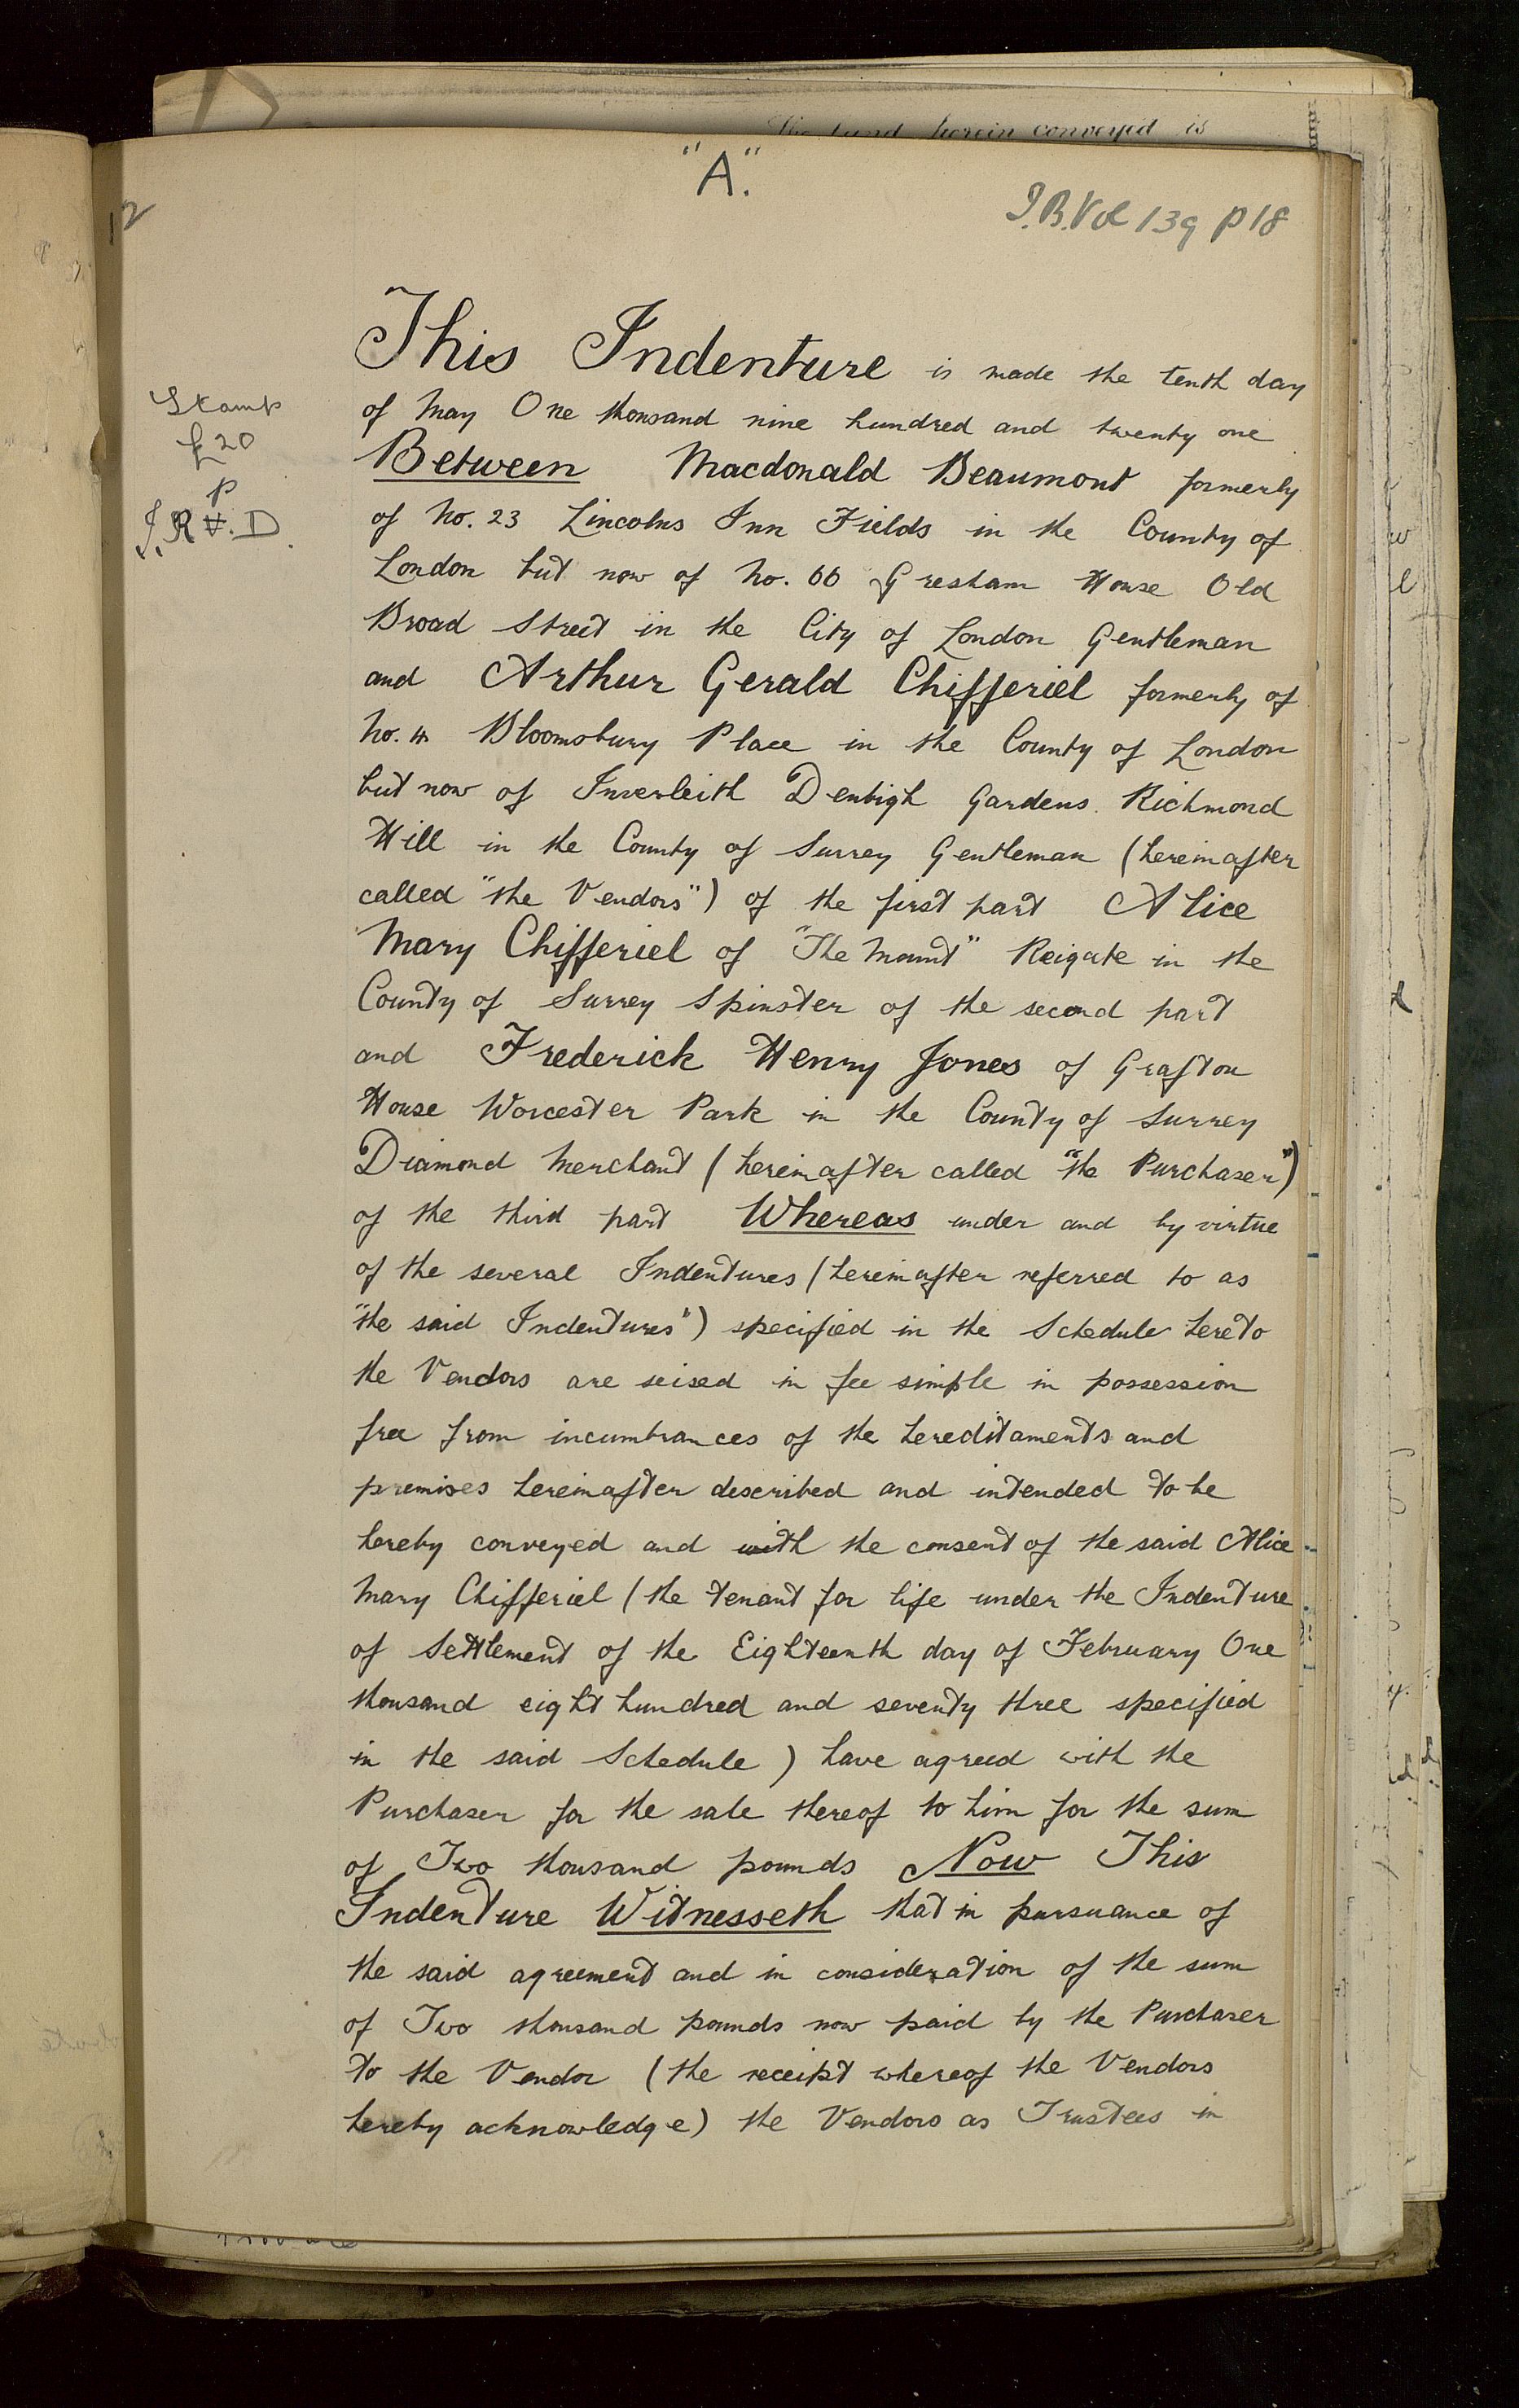 The land herein conveyed is
"A".
I.B. Vol 139 p18
12
Stamp
£20
P
This Indenture is made the tenth day
of May One thousand nine hundred and twenty one
Between Macdonald Beaumont formerly
of No. 23 Lincolns Inn Fields in the County of
London but now of No. 66 Gresham House Old
Broad Street in the City of London Gentleman
and Arthur Gerald Chifferiel formerly of
No. 4 Bloomsbury Place in the County of London
but now of Inverleith Denbigh Gardens Richmond
Hill in the County of Surrey Gentleman (hereinafter
called "the Vendors") of the first part Alice
Mary Chifferiel of "The Mount" Reigate in the
County of Surrey Spinster of the second part
and Frederick Henry Jones of Grafton
House Worcester Park in the County of Surrey
Diamond Merchant (hereinafter called "the Purchaser")
of the third part Whereas under and by virtue
of the several Indentures (hereinafter referred to as
"the said Indentures") specified in the Schedule hereto
the Vendors are seised in fee simple in possession
free from incumbrances of the hereditaments and
premises hereinafter described and intended to be
hereby conveyed and with the consent of the said Alice
Mary Chifferiel (the tenant for life under the Indenture
of Settlement of the Eighteenth day of February One
thousand eight hundred and seventy three specified
in the said Schedule) have agreed with the
Purchaser for the sale thereof to him for the sum
of Two thousand pounds Now This
Indenture Witnesseth that in pursuance of
the said agreement and in consideration of the sum
of Two thousand pounds now paid by the Purchaser
to the Vendor (the receipt whereof the Vendors
hereby acknowledge) the Vendors as Trustees in